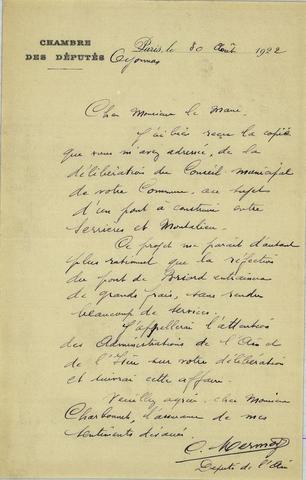 CHAMBRE
DES DÉPUTÉS
Paris, le 30 Août 1922
Oyonnax
Cher Monsieur le Maire,
J'ai bien reçu la copie
que vous m'avez adressée, de la
délibération du Conseil municipal
de votre Commune, au sujet
d'un pont à construire entre
Serrières et Montalieu.
Ce projet me parait d'autant
plus rationnel que la réfection
du pont de Briord entrainera
de grands frais, sans rendre
beaucoup de services.
J'appellerai l'attention
des Administrations de l'Ain et
de l'Isère sur votre délibération
et suivrai cette affaire.
Veuillez agréer, cher Monsieur
Charbonnet, l'assurance de mes
sentiments dévoués.
C. Mermod
Député de l'Ain